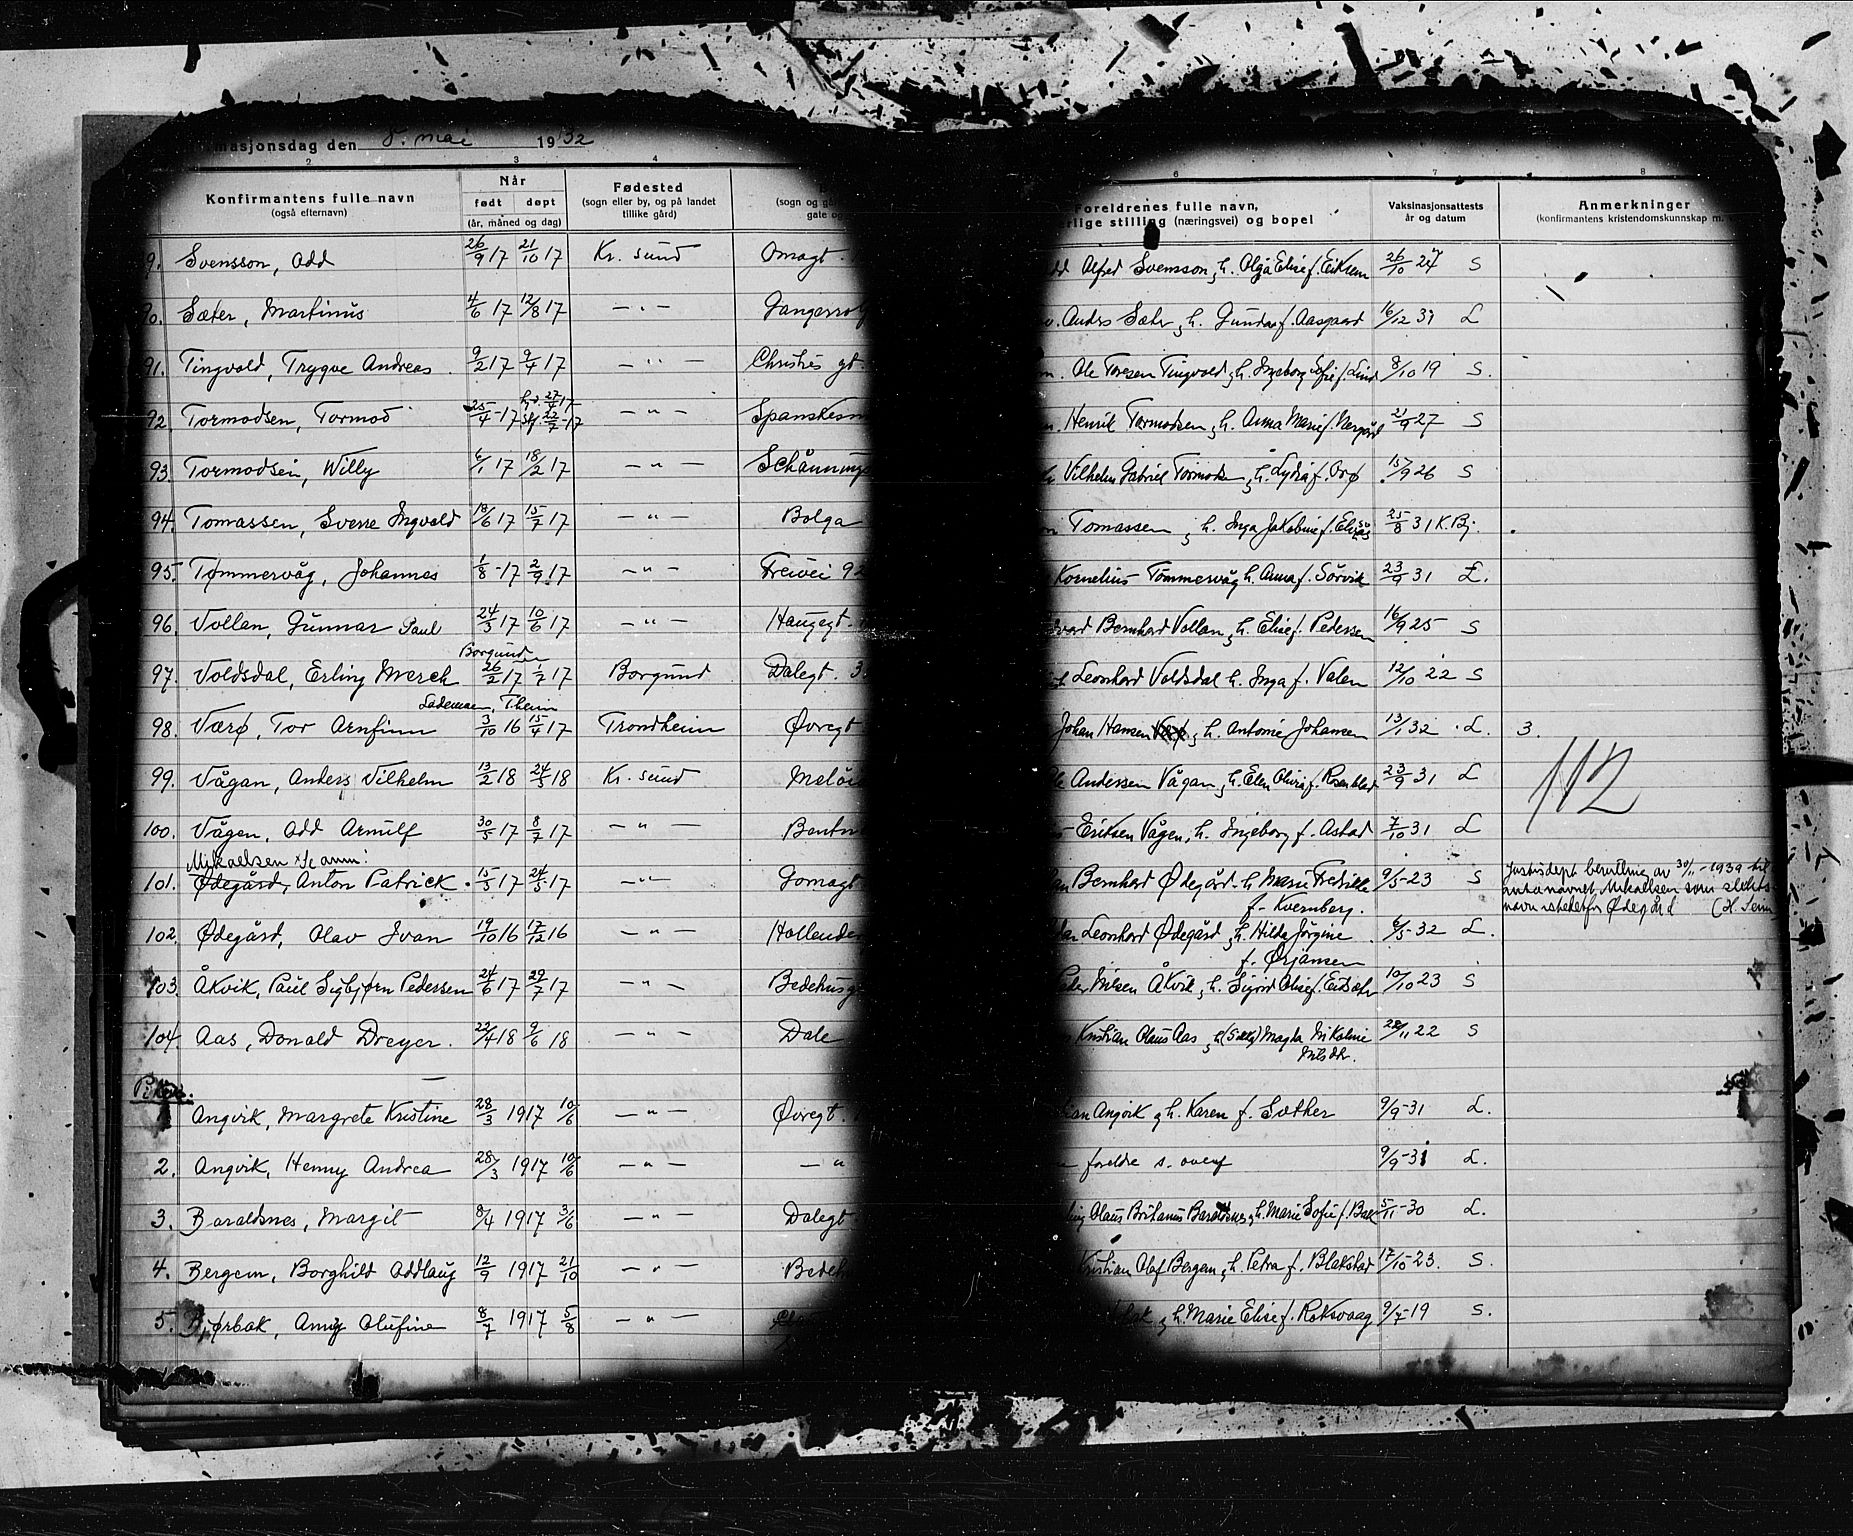 masjonsdag den 8. mai 1932
2 3 4 6 7 8
Konfirmantens fulle navn (også efternavn) Når født døpt (år, måned og dag) Fødested (sogn eller by, og på landet tillike gård) (sogn og gå gate og Foreldrenes fulle navn, rlige stilling (næringsvei) og bopel Vaksinasjonsattests år og datum Anmerkninger (konfirmantens kristendomskunnskap m.
9. Svensson, Odd 26/9 17 21/10 17 Kr. sund Omagt. Alfred Svensson, h. Olga Elise f. Eriksen 26/10 24 S
90. Sæter, Martinus 4/6 17 12/8 17 — " — Gangerrolf Anders Sæter h. Gunda f. Aasgaard 16/12 31 L
91. Tingvold, Trygve Andreas 9/2 17 9/4 17 — " — Christies gt. Ole Toresen Tingvold, h. Ingeborg Sofie f. Lind 8/10 19 S.
92. Tormodsen, Tormod 25/4 - 17 27/4 17 22/7 - 17 — " — Spanskesm Henrik Tormodsen, h. Anna Marie f. Nergård 21/9 27 S
93. Tormodsen, Willy 6/1 17 18/2 17 — " — Schånnings Vilhelm Gabriel Tormodsen h. Lydia f. Orø 15/9 26 S
94. Tomassen, Sverre Ingvald 18/6 17 15/7 17 — " — Bolga Tomassen h. Inga Jakobine f. 25/8 31 K. Bj.
95. Tømmervåg, Johannes 1/8 - 17 2/9 17 — " — Freivei 92 Kornelius Tömmervåg h. Anna f. Sørvik 23/9 31 L.
96. Vollan, Gunnar Paul 24/3 17 10/6 17 — " — Haugegt. Bernhard Vollan, h. Elise f. Pedersen 16/9 25 S
Borgund
97. Voldsdal, Erling Merck 26/2 17 1/7 17 Borgund Dalegt. 3 Leonhard Voldsdal h. Inga f. Valen 12/10 22 S
Lademoen, Thjem
98. Værø, Tor Arnfinn 3/10 16 15/4 17 Trondheim Øvregt Johan Hansen h. Antonie Johansen 13/1 32 L. 3.
99. Vågan, Anders Vilhelm 13/2 18 24/5 18 Kr. sund Meløi Andersen Vågan, h. Elen Olivia f. Rosenblad 23/9 31 L 112
100. Vågen, Odd Arnulf 30/5 17 8/7 17 — " — Bentn Eriksen Vågen, h. Ingeborg f. Astad 7/10 31 L
Mikaelsen se anm:
101. Ødegård, Anton Patrick 15/5 17 24/5 17 — " — Gomagt Bernhard Ødegård h. Marie Fredrikke 9/5 - 23 S Justisdept. bevilling av 30/11 - 1939 til
f. Kvernberg. anta navnet Mikaelsen som slekts-
navn istedetfor Ødegård
102. Ødegård, Olav Ivan 19/10 16 17/12 16 — " — Hollender Leonhard Ødegård, h. Hilda Jorgine 6/5 - 32 L.
f. Ørjansen
103. Åkvik, Paul Sigbjørn Pedersen 24/6 17 29/7 17 — " — Bedehusg Peder Nilsen Åkvik, h. Sigrid Olise f. Eidsæter 10/10 23 S
104. Aas, Donald Dreyer. 22/4 18 9/6 18 — " — Dale Kristian Olaus Aas h. Magda Nikoline 28/11 22 S
Nilsdtr.
Piker.
1 Angvik, Margrete Kristine 28/3 1917 10/6 — " — Øvregt. Angvik, h. Karen f. Sæther 9/9 - 31 L.
2. Angvik, Henny Andrea 28/3 1917 10/6 — " — — " foreldre s. ovenf 9/9 - 31 L.
3. Baraldsnes, Margit 8/4 1917 3/6 — " — Dalegt Olaus Britanus Baraldsnes, h. Marie Sofie f. Bak 5/11 - 30 L.
4. Bergem, Borghild Oddlaug 12/9 1917 21/10 — " — Bedeh Kristian Olaf Bergem, h. Petra f. Blakstad 17/10 - 23. S.
5. Bjørbak, Anny Olufine 8/7 1917 5/8 — " — h. Marie Elise f. Roksvaag 9/7 - 19 S.